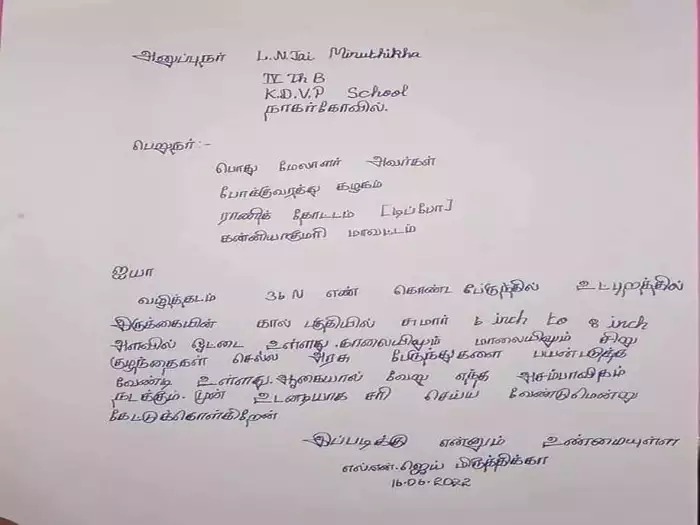 அனுப்புநர் L.N.Jai Miruthikha
IV th B
K.D.V.P School
நாகர்கோவில்.
பெறுநர் :-
பொது மேலாளர் அவர்கள்
போக்குவரத்து கழகம்
ராணித் தோட்டம் [டிப்போ]
கன்னியாகுமரி மாவட்டம்
ஐயா
வழித்தடம் 36 N எண் கொண்ட பேருந்தில் உட்புறத்தில்
இருக்கையின் கால் பகுதியில் சுமார் 6 inch to 8 inch
அளவில் ஓட்டை உள்ளது. காலையிலும் மாலையிலும் சிறு
குழந்தைகள் செல்ல அரசு பேருந்துகளை பயன்படுத்த
வேண்டி உள்ளது. ஆகையால் வேறு எந்த அசம்பாவிதம்
நடக்கும். முன் உடனடியாக சரி செய்ய வேண்டுமென்று
கேட்டுக்கொள்கிறேன்
இப்படிக்கு என்னும் உண்மையுள்ள
எல்.என்.ஜெய் மிருத்திக்கா
16-06-2022